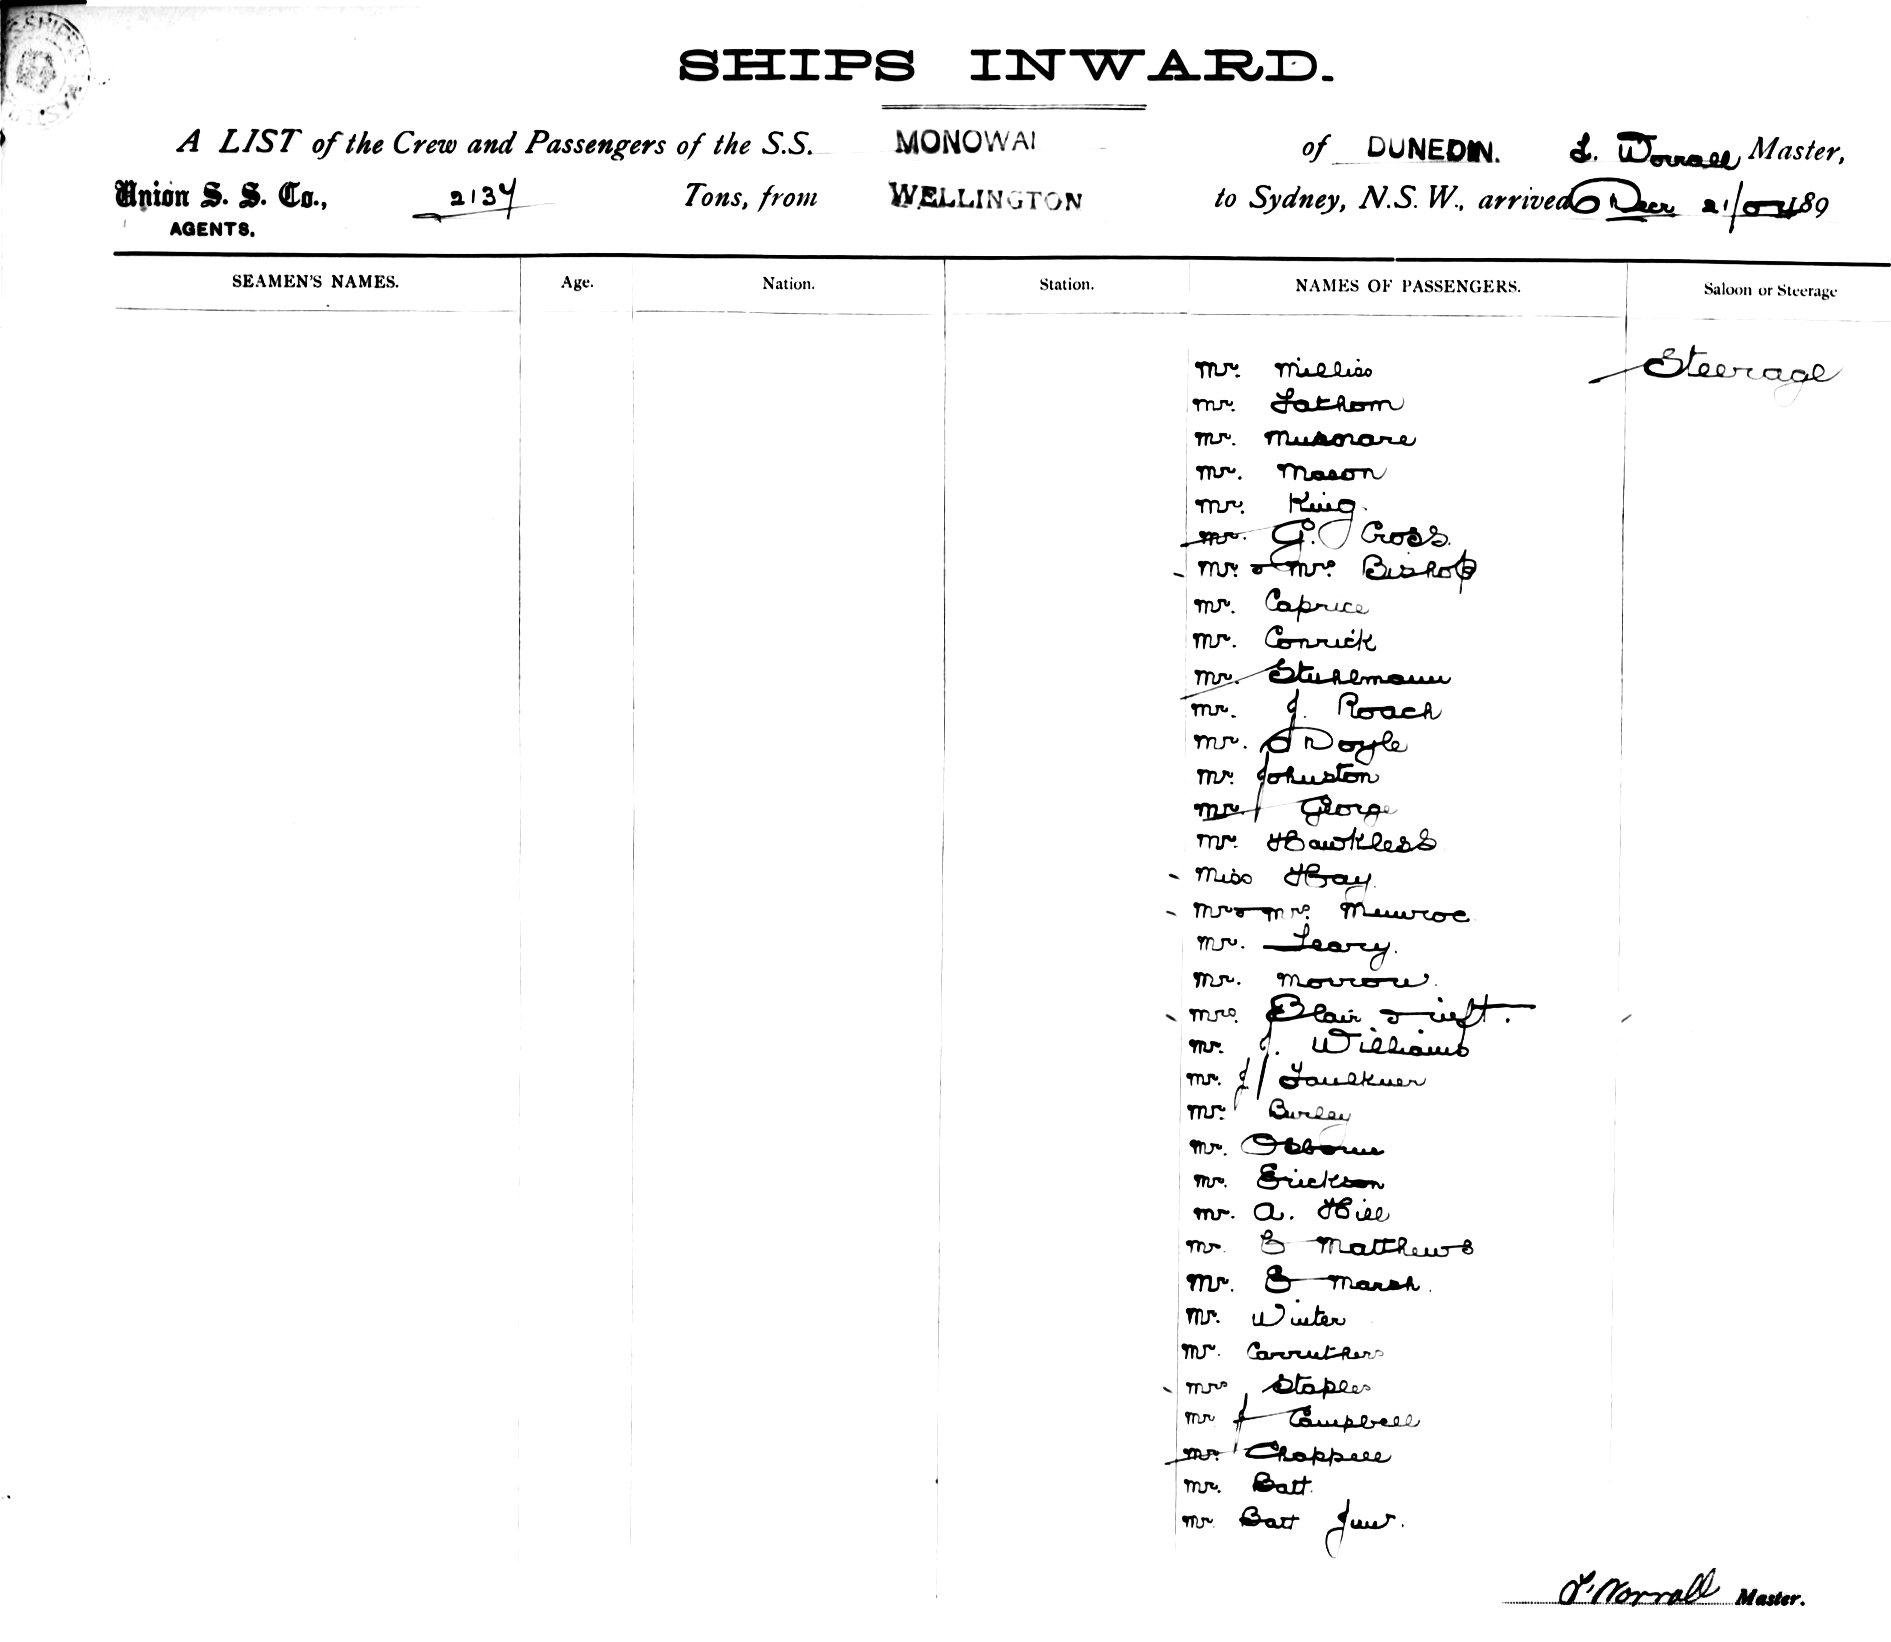 SHIPS INWARD.
A LIST of the Crew and Passengers of the S.S. MONOWAI of DUNEDIN. L. Worrall Master,
Union S. S. Co., 2137 Tons, from WELLINGTON to Sydney, N.S.W., arrived Decr 21/ 189
AGENTS.
SEAMEN'S NAMES. Age. Nation. Station. NAMES OF PASSENGERS. Saloon or Steerage
Mr. Milliss Steerage
Mr. Fathom
Mr. Musmare
Mr. Mason
Mr. King.
Mr. G. Cross.
Mr. & Mrs. Bishop
Mr. Caprice
Mr. Conrick
Mr. Stuhlmann
Mr. J. Roach
Mr. O'Doyle
Mr. Johnston
Mr. George
Mr. Hawkless
Miss Hay.
Mr & Mrs. Munroe
Mr. Leary.
Mr. Morrow.
Mrs. Blair & inft.
Mr. J. Williams
Mr. J Faulkner
Mr. Burley
Mr. Osborne
Mr. Erickson
Mr. A. Hill
Mr. E Matthews
Mr. E Marsh.
Mr. Winter
Mr. Carruthers
Mrs Staples
Mr J Campbell
Mr. Chappell
Mr. Batt.
Mr Batt Junr.
L. Worrall Master.